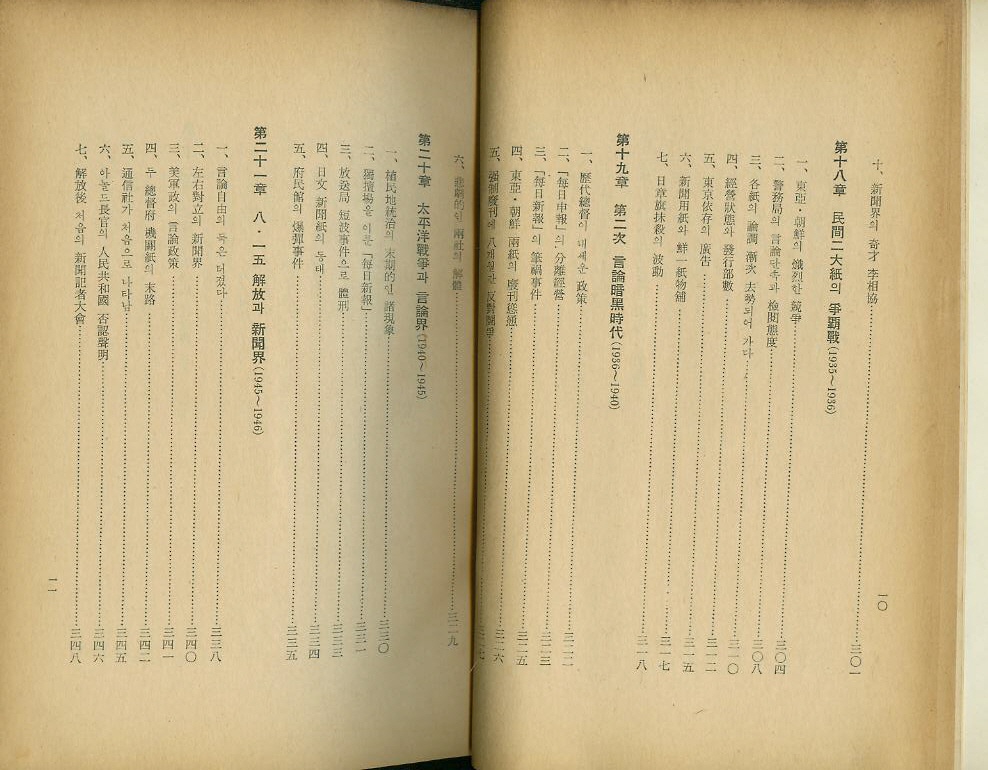 十、新聞界의 奇才 李相協…三〇一
第十八章 民間二大紙의 爭覇戰(1935~1936)
一、東亞・朝鮮의 熾烈한 競爭
二、警務局의 言論단속과 檢閱態度…三〇四
三、各紙의 論調 漸次 去勢되어 가다…三〇八
四、經營狀態와 發行部數…三一〇
五、東京依存의 廣告…三一二
六、新聞用紙와 鮮一紙物舖…三一五
七、日章旗抹殺의 波動…三一七
第十九章 第二次 言論暗黑時代(1936~1940)
一、歷代總督이 내세운 政策…三一八
二、「每日申報」의 分離經營…三二二
三、「每日新報」의 筆禍事件…三二三
四、東亞・朝鮮 兩紙의 廢刊慫慂…三二五
五、强制廢刊에 八개월간 反對鬪爭…三二六
六、悲劇的인 兩社의 解體…三二九
第二十章 太平洋戰爭과 言論界(1940~1945)
一、植民地統治의 末期的인 諸現象…三三〇
二、獨擅場을 이룬「每日新報」…三三一
三、放送局 短波事件으로 體刑…三三三
四、日文 新聞紙의 동태…三三四
五、府民館의 爆彈事件…三三五
第二十一章 八・一五 解放과 新聞界(1945~1946)
一、言論自由의 둑은 터졌다…三三八
二、左右對立의 新聞界…三四〇
三、美軍政의 言論政策…三四一
四、두 總督府 機關紙의 末路…三四二
五、通信社가 처음으로 나타남…三四五
六、아놀드長官의 人民共和國 否認聲明…三四六
七、解放後 처음의 新聞記者大會…三四八
一〇
一一